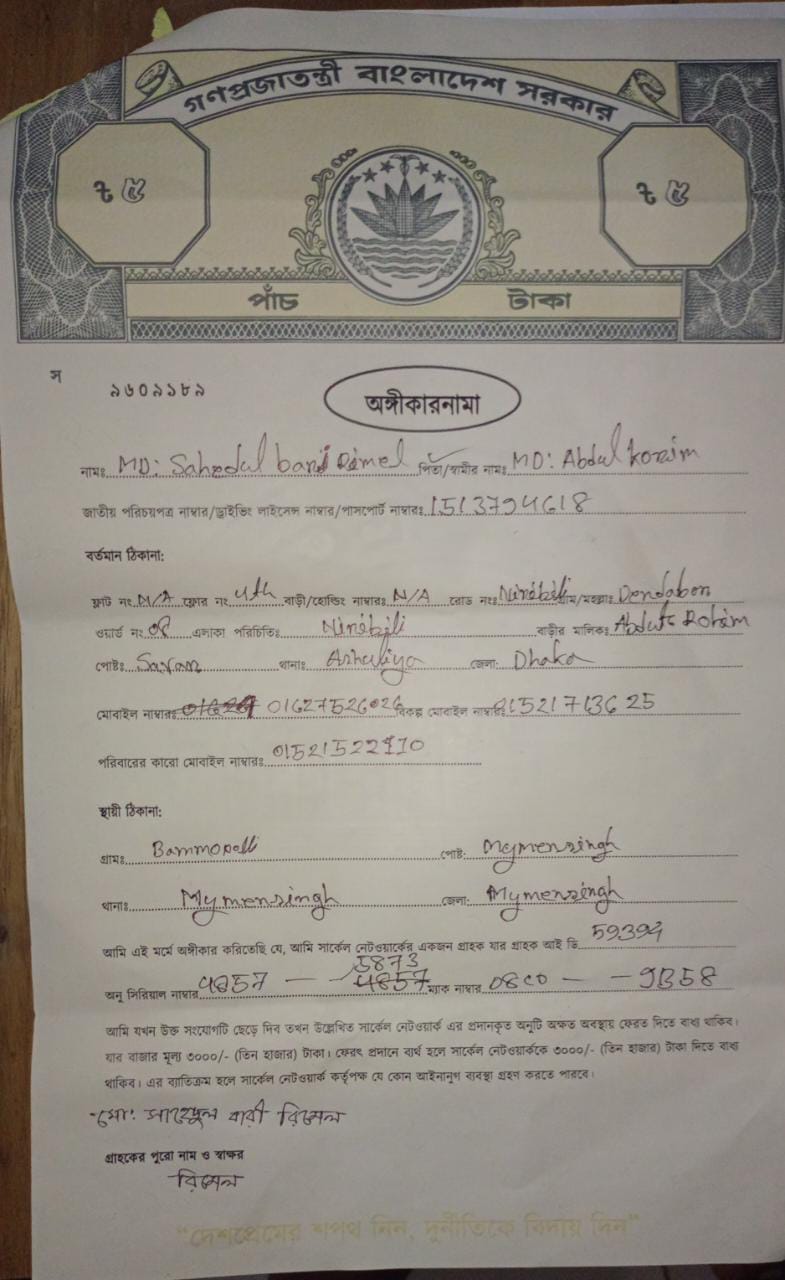 গণপ্রজাতন্ত্রী বাংলাদেশ সরকার
৳ ৫ ৳ ৫
পাঁচ টাকা
স ৯৬০৯১৮৯
অঙ্গীকারনামা
নামঃ MD: Sahedul bari Rimel পিতা/স্বামীর নামঃ MD: Abdul korim
জাতীয় পরিচয়পত্র নাম্বার/ড্রাইভিং লাইসেন্স নাম্বার/পাসপোর্ট নাম্বারঃ 1513794618
বর্তমান ঠিকানা:
ফ্লাট নং N/A ফ্লোর নং 4th বাড়ী/হোল্ডিং নাম্বারঃ N/A রোড নংঃ Niribili গ্রাম/মহল্লাঃ Dendabor
ওয়ার্ড নং 08 এলাকা পরিচিতিঃ Niribili বাড়ীর মালিকঃ Abdur Rohim
পোষ্টঃ Savar থানাঃ Ashuliya জেলা: Dhaka
মোবাইল নাম্বারঃ 01627526026 বিকল্প মোবাইল নাম্বারঃ 01521713625
পরিবারের কারো মোবাইল নাম্বারঃ
স্থায়ী ঠিকানা:
গ্রামঃ Bammopolli পোষ্ট: Mymensingh
থানাঃ Mymensingh জেলা: Mymensingh
আমি এই মর্মে অঙ্গীকার করিতেছি যে, আমি সার্কেল নেটওয়ার্কের একজন গ্রাহক যার গ্রাহক আই ডি 59394
5873
অনু সিরিয়াল নাম্বার 4857 — 4857 ম্যাক নাম্বার — - 9B58
আমি যখন উক্ত সংযোগটি ছেড়ে দিব তখন উল্লেখিত সার্কেল নেটওয়ার্ক এর প্রদানকৃত অনুটি অক্ষত অবস্থায় ফেরত দিতে বাধ্য থাকিব।
যার বাজার মূল্য ৩০০০/- (তিন হাজার) টাকা। ফেরৎ প্রদানে ব্যর্থ হলে সার্কেল নেটওয়ার্ককে ৩০০০/- (তিন হাজার) টাকা দিতে বাধ্য
থাকিব। এর ব্যতিক্রম হলে সার্কেল নেটওয়ার্ক কর্তৃপক্ষ যে কোন আইনানুগ ব্যবস্থা গ্রহণ করতে পারবে।
মো: সাহেদুল বারী রিমেল
গ্রাহকের পুরো নাম ও স্বাক্ষর
রিমেল
"দেশপ্রেমের শপথ নিন, দুর্নীতিকে বিদায় দিন"